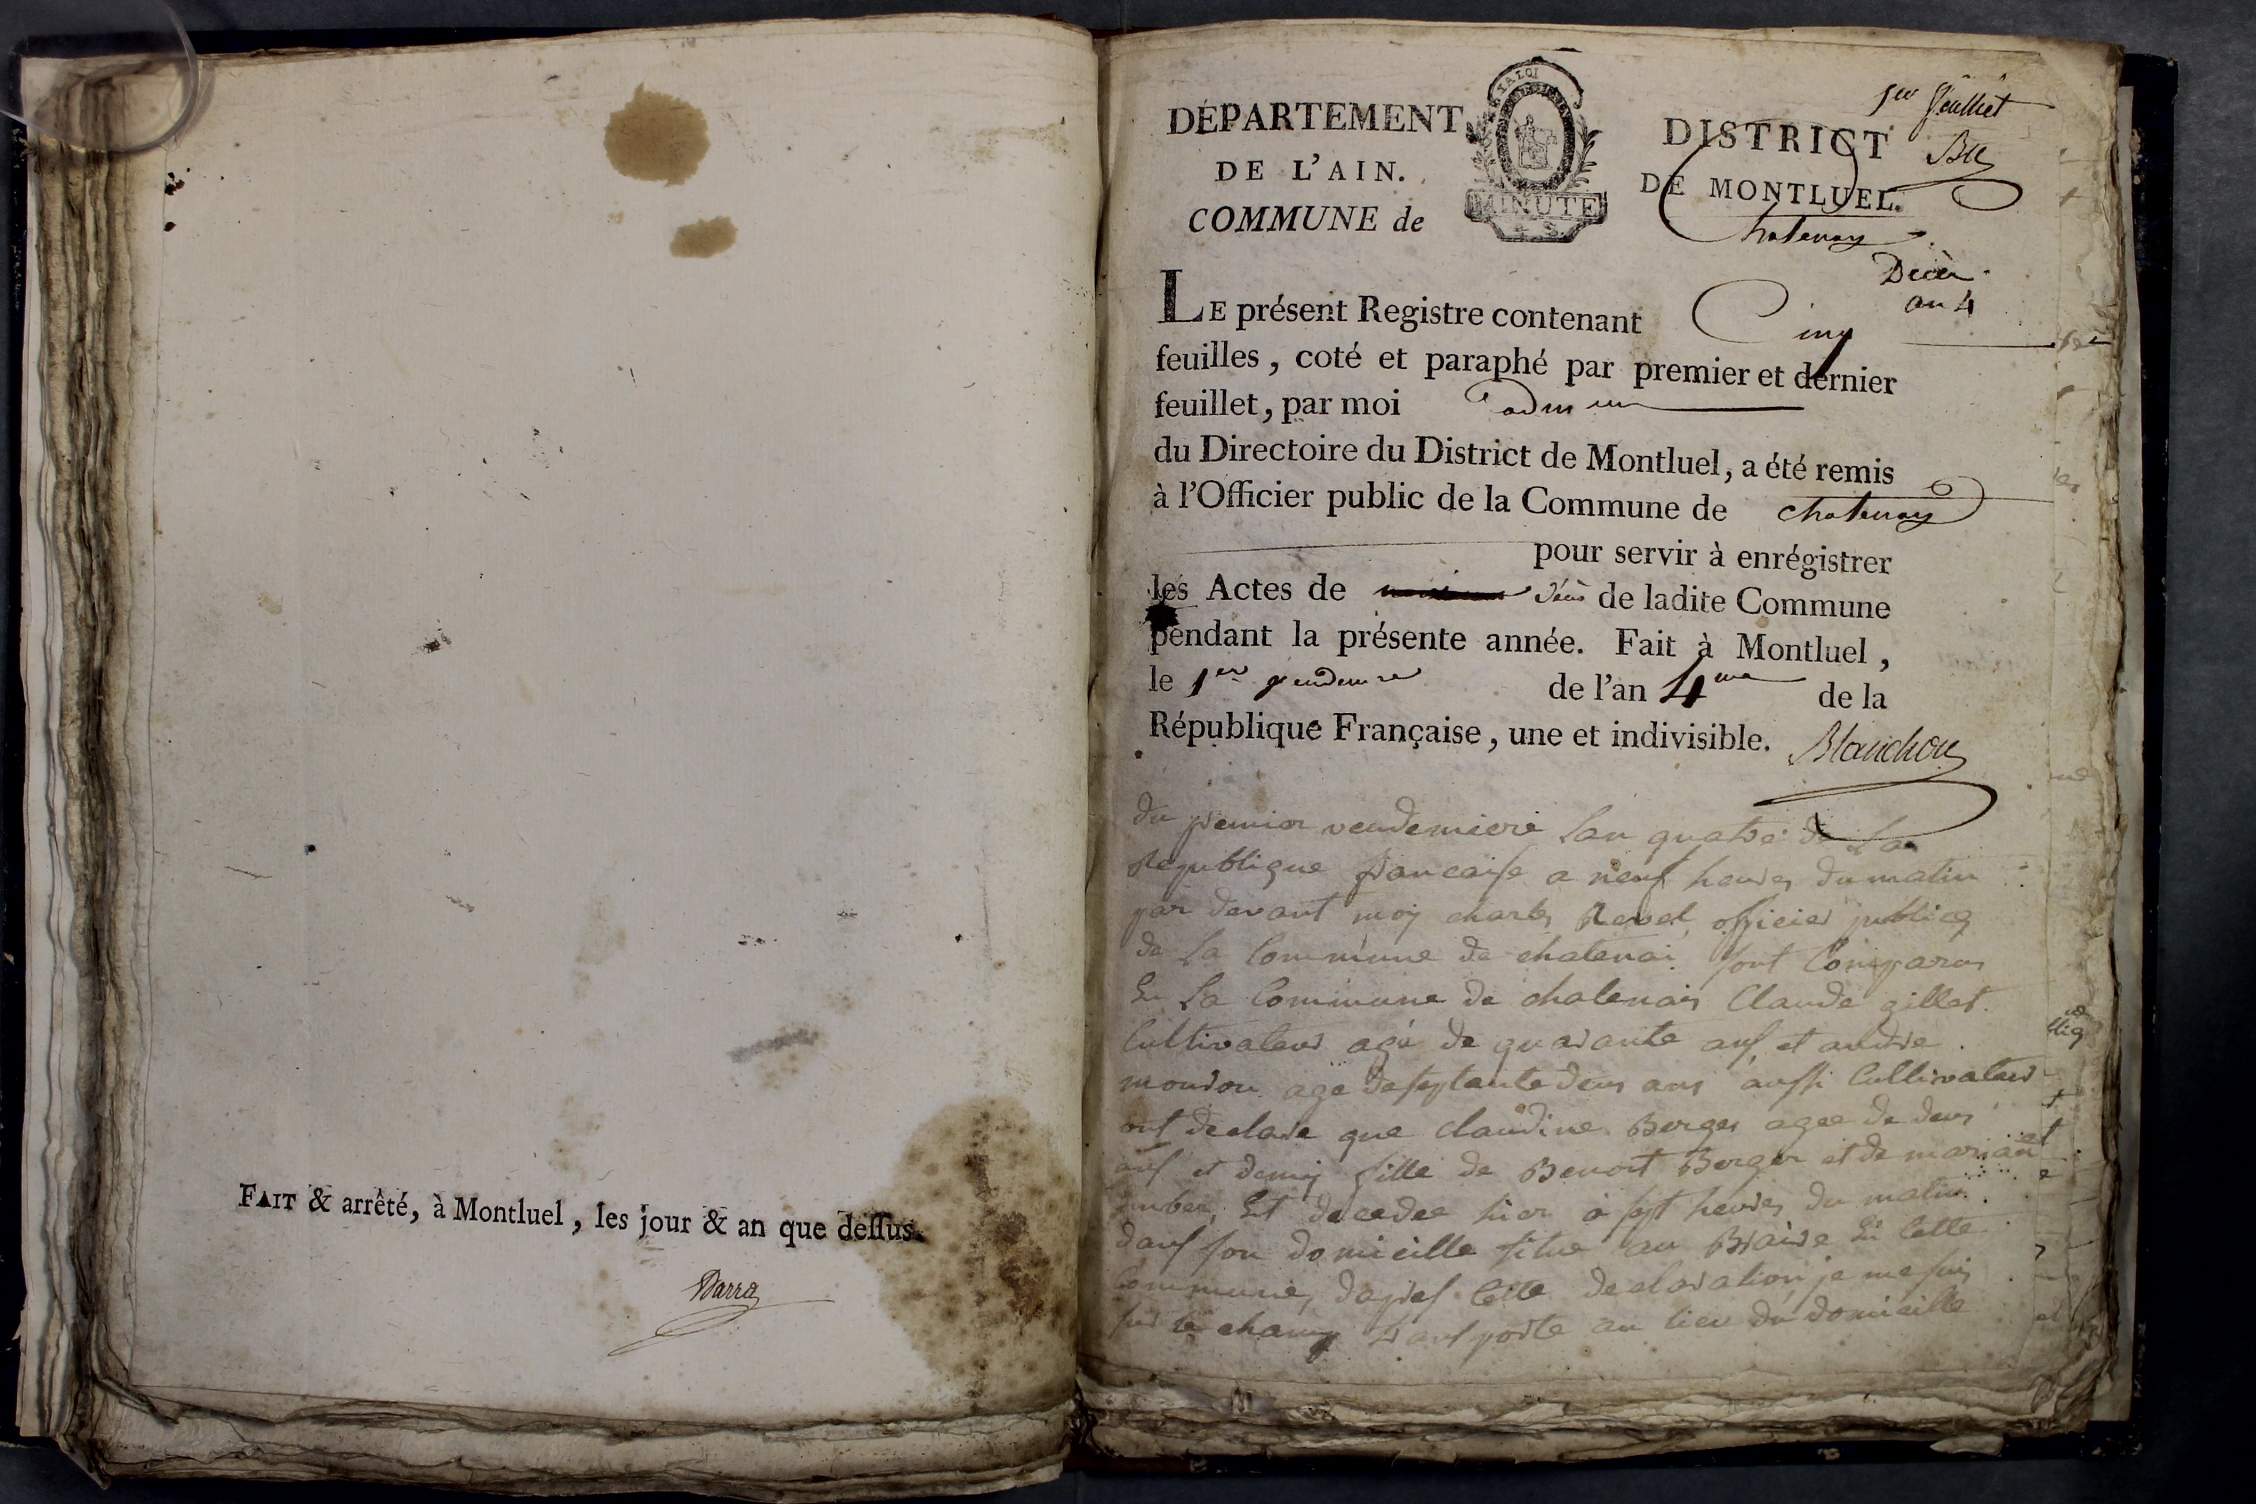 FAIT & arrêté, à Montluel, les jour & an que dessus.
Barra
1er feuillet
DÉPARTEMENT
DE L'AIN.
COMMUNE de
LA LOI
MINUTE
DISTRICT
DE MONTLUEL.
Chatenay
Décès
an 4
LE présent Registre contenant Cinq
feuilles, coté et paraphé par premier et dernier
feuillet, par moi adm
du Directoire du District de Montluel, a été remis
à l'Officier public de la Commune de chatenay
pour servir à enrégistrer
les Actes de décès de ladite Commune
pendant la présente année. Fait à Montluel,
le 1er vendemre de l'an 4me de la
République Française, une et indivisible. Blanchon
du premier vendemiere lan quatre de la
Republique francaise a neuf heures du matin
par devant moy charles Revel officier publicq
de la Commune de chatenai sont Comparus
En la Commune de chatenais Claude gillet
Cultivateur agé de quarante ans et andre
mouron age de septante deus ans aussi Cultivateur
ont declare que claudine Berger agee de deus
ans et demy fille de Benoit Berger et de mariane
Et decedee hier a sept heures du matin
dans son domicille situe au En Cette
Commune, dapres Cette declaration je me suis
sur le champ transporte au lieu du domicille